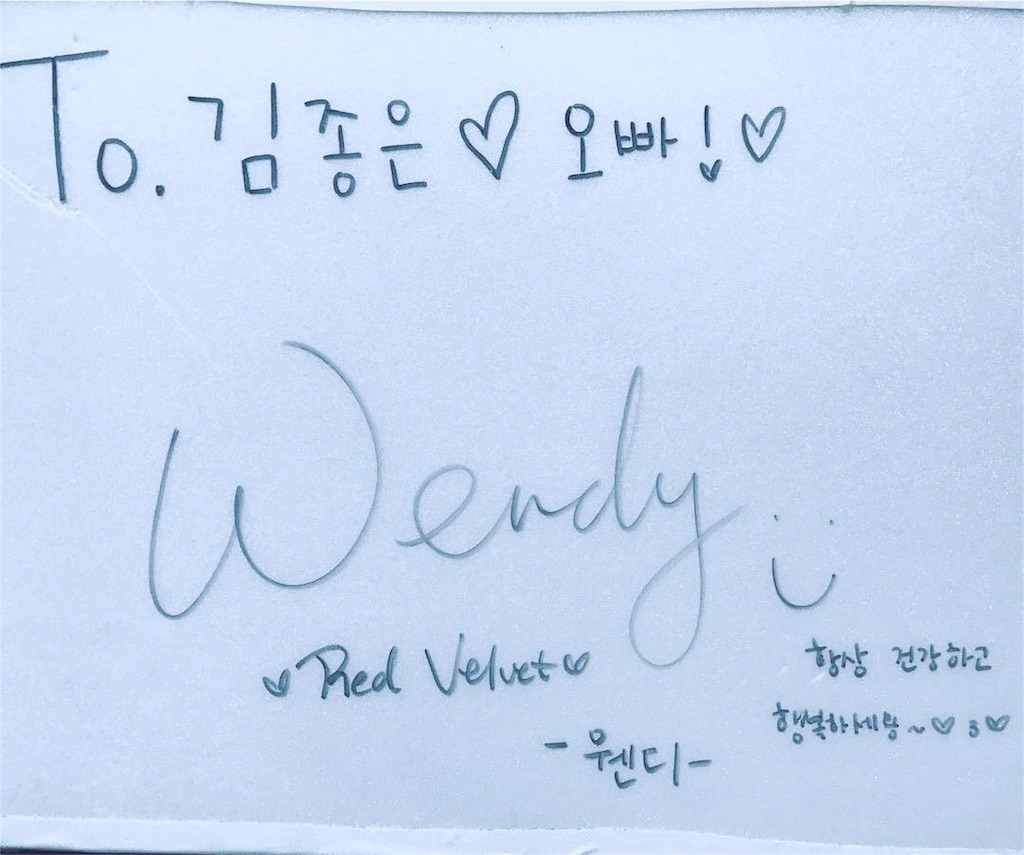 To. 김종은 ♡ 오빠! ♡
Wendy
♡ Red Velvet ♡
항상 건강하고
행복하세용~♡3♡
-웬디-